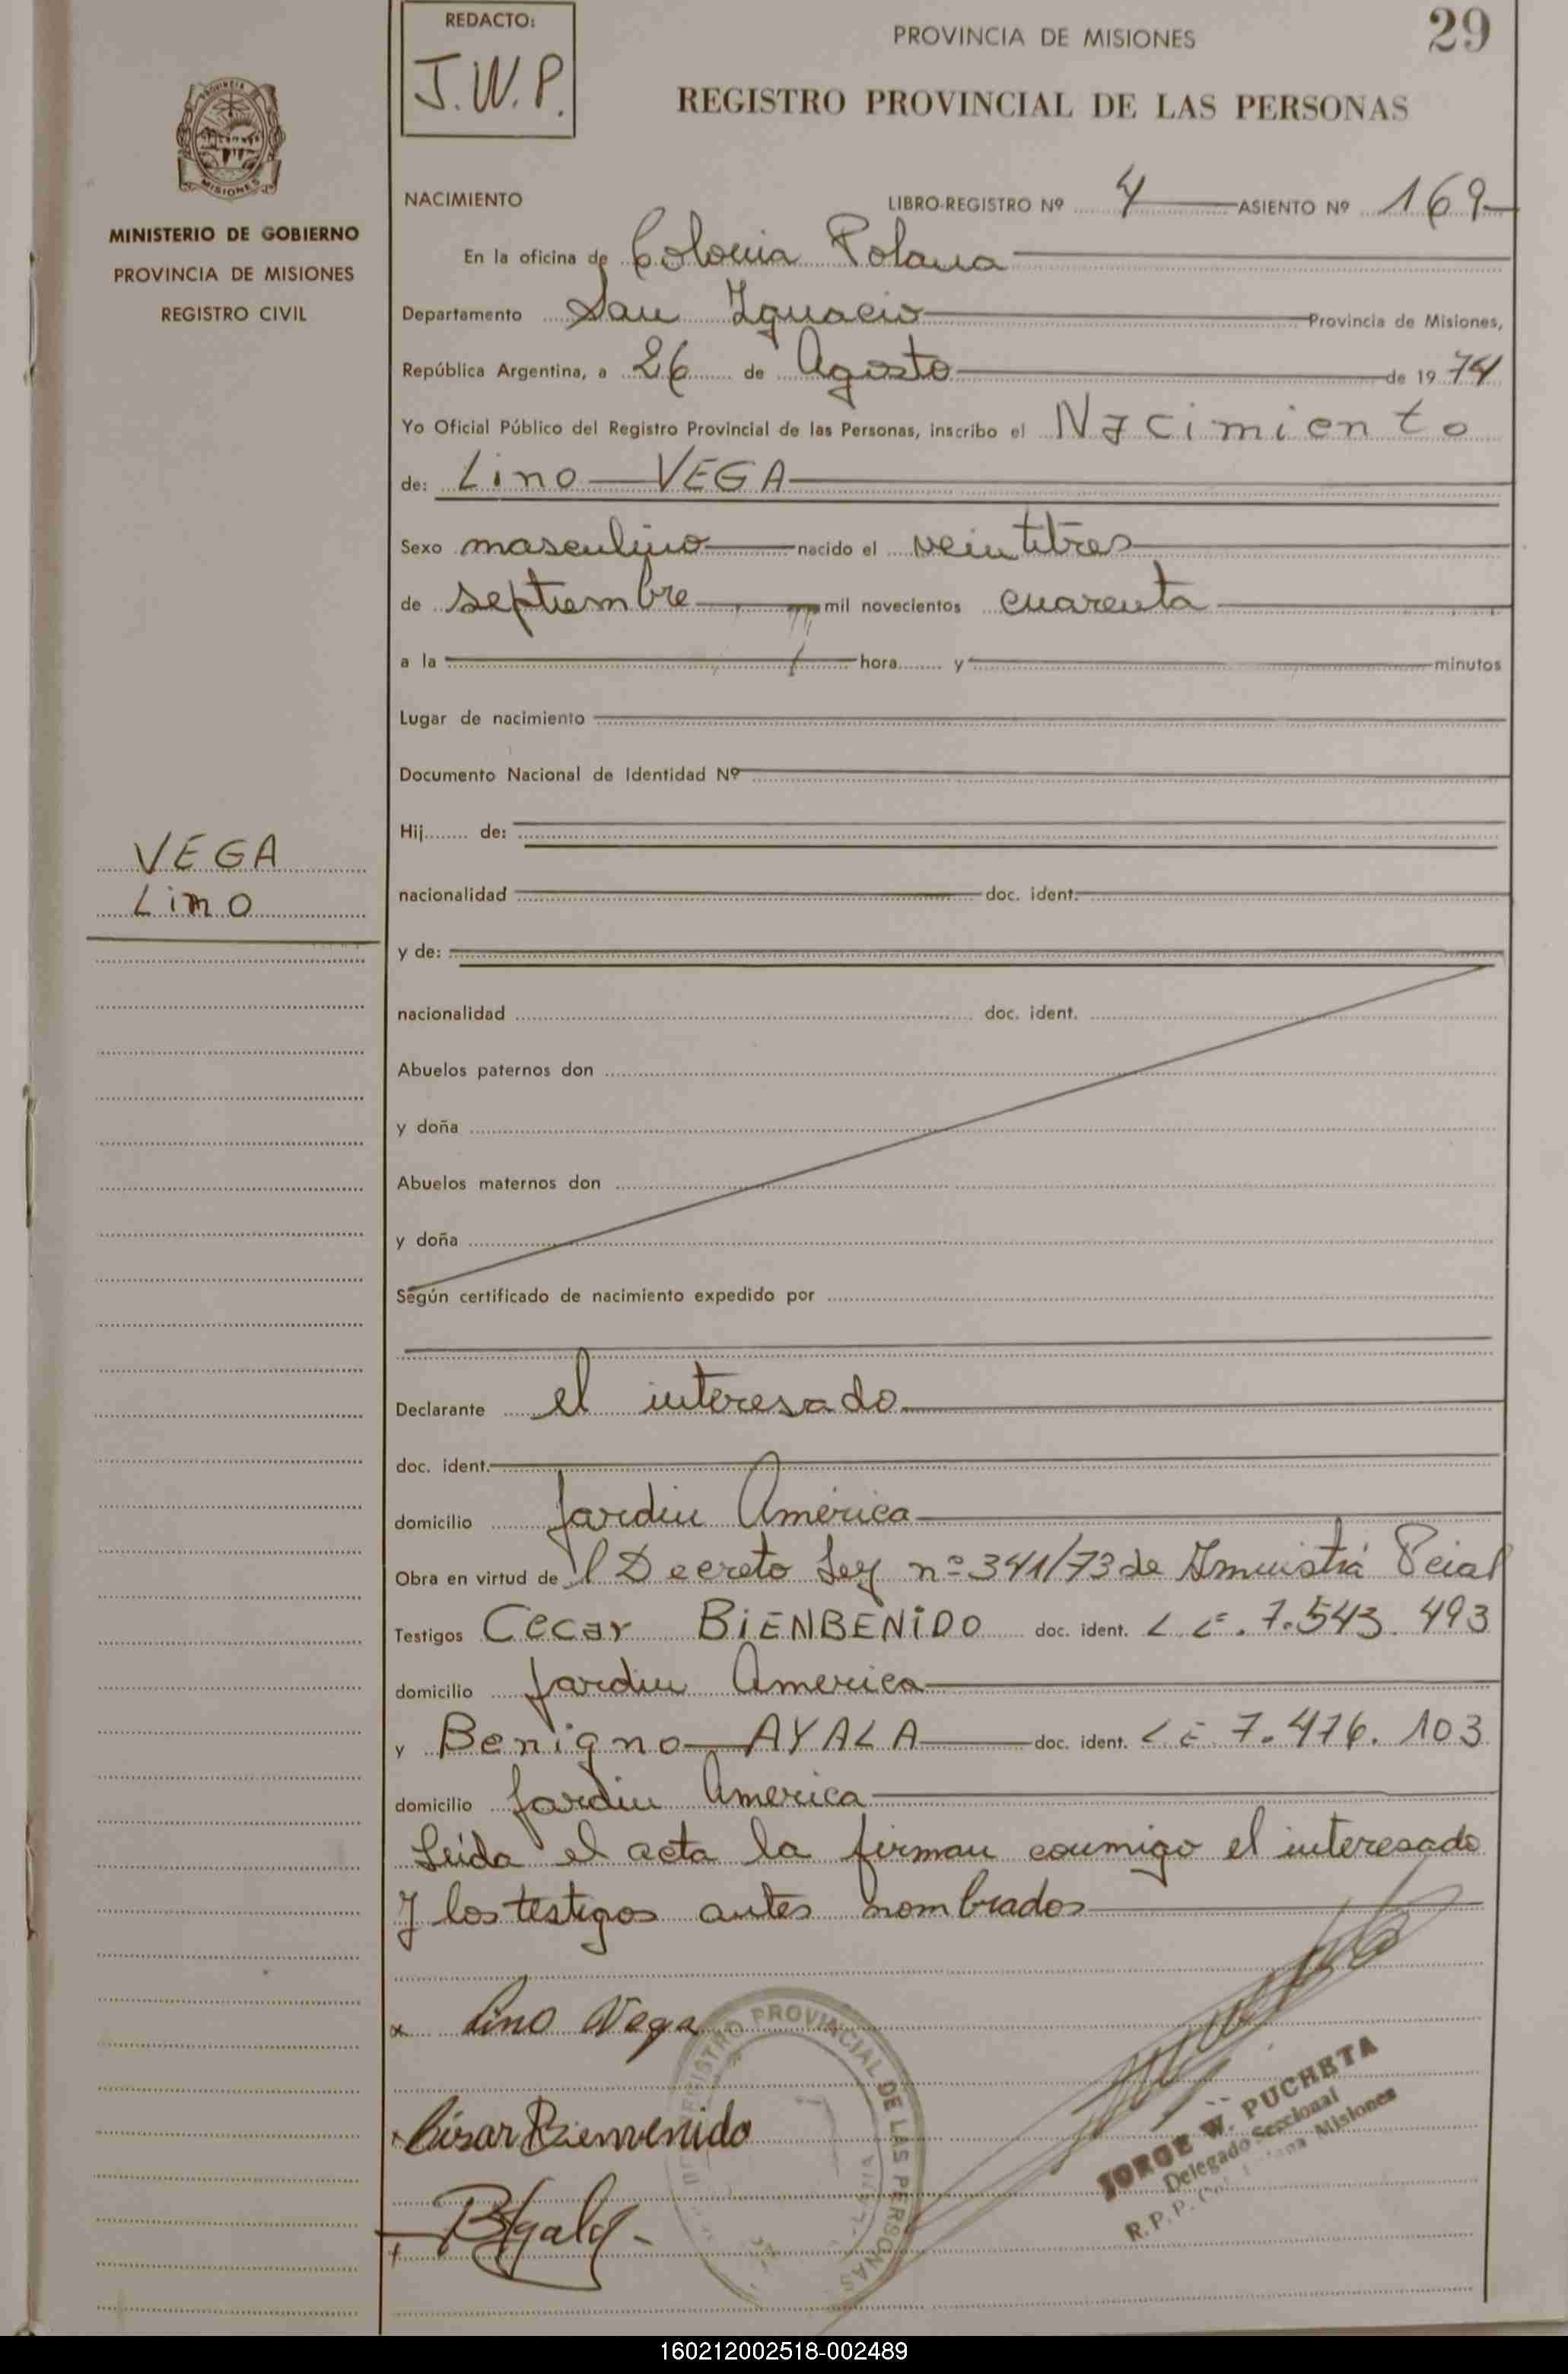 REDACTO:
J.W.P.
PROVINCIA DE MISIONES
29
REGISTRO PROVINCIAL DE LAS PERSONAS
MISIONES
MINISTERIO DE GOBIERNO
PROVINCIA DE MISIONES
REGISTRO CIVIL
NACIMIENTO LIBRO-REGISTRO Nº 4 ASIENTO Nº 169
En la oficina de Colonia Polana
Departamento San Ignacio Provincia de Misiones,
República Argentina, a 26 de Agosto de 1974
Yo Oficial Público del Registro Provincial de las Personas, inscribo el Nacimiento
de: Lino VEGA
Sexo masculino nacido el veintitres
de septiembre mil novecientos cuarenta
a la hora y minutos
Lugar de nacimiento
Documento Nacional de Identidad Nº
Hij de:
VEGA
Lino
nacionalidad doc. ident.
y de:
nacionalidad doc. ident.
Abuelos paternos don
y doña
Abuelos maternos don
y doña
Según certificado de nacimiento expedido por
Declarante el interesado
doc. ident.
domicilio Jardin América
Obra en virtud del Decreto Ley nº 341/73 de Amnistia Pcial
Testigos Cecar BIENBENIDO doc. ident. L.E. 7.543.493
domicilio Jardin America
y Benigno AYALA doc. ident. L E 7.476.103
domicilio Jardin America
Leida el acta la firman conmigo el interesado
y los testigos antes nombrados
x Lino Vega
REGISTRO PROVINCIAL DE LAS PERSONAS
x César Bienvenido
JORGE W. PUCHETA
Delegado Seccional
R. P. P. Misiones
160212002518-002489